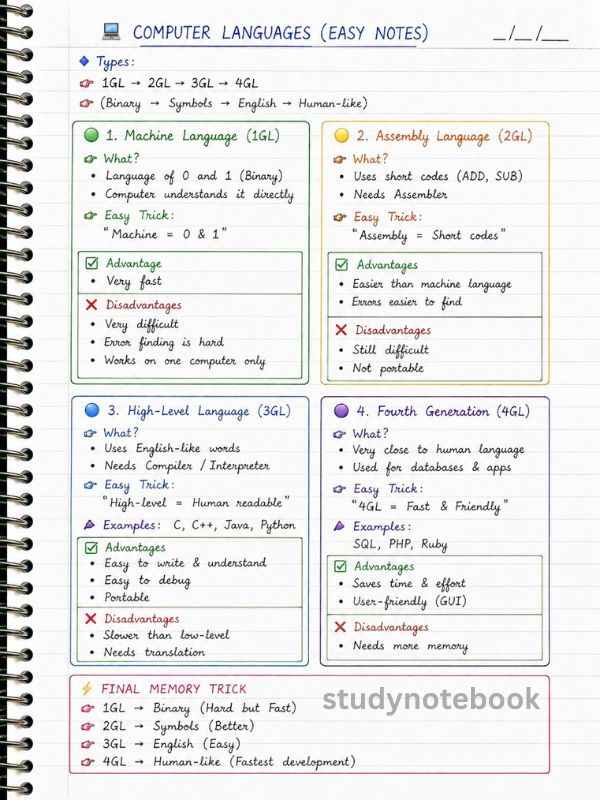 COMPUTER LANGUAGES (EASY NOTES)
__/__/___
Types:
1GL → 2GL → 3GL → 4GL
(Binary → Symbols → English → Human-like)
1. Machine Language (1GL)
What?
• Language of 0 and 1 (Binary)
• Computer understands it directly
Easy Trick:
"Machine = 0 & 1"
Advantage
• Very fast
Disadvantages
• Very difficult
• Error finding is hard
• Works on one computer only
2. Assembly Language (2GL)
What?
• Uses short codes (ADD, SUB)
• Needs Assembler
Easy Trick:
"Assembly = Short codes"
Advantages
• Easier than machine language
• Errors easier to find
Disadvantages
• Still difficult
• Not portable
3. High-Level Language (3GL)
What?
• Uses English-like words
• Needs Compiler / Interpreter
Easy Trick:
"High-level = Human readable"
Examples: C, C++, Java, Python
Advantages
• Easy to write & understand
• Easy to debug
• Portable
Disadvantages
• Slower than low-level
• Needs translation
4. Fourth Generation (4GL)
What?
• Very close to human language
• Used for databases & apps
Easy Trick:
"4GL = Fast & Friendly"
Examples:
SQL, PHP, Ruby
Advantages
• Saves time & effort
• User-friendly (GUI)
Disadvantages
• Needs more memory
FINAL MEMORY TRICK
studynotebook
1GL → Binary (Hard but Fast)
2GL → Symbols (Better)
3GL → English (Easy)
4GL → Human-like (Fastest development)